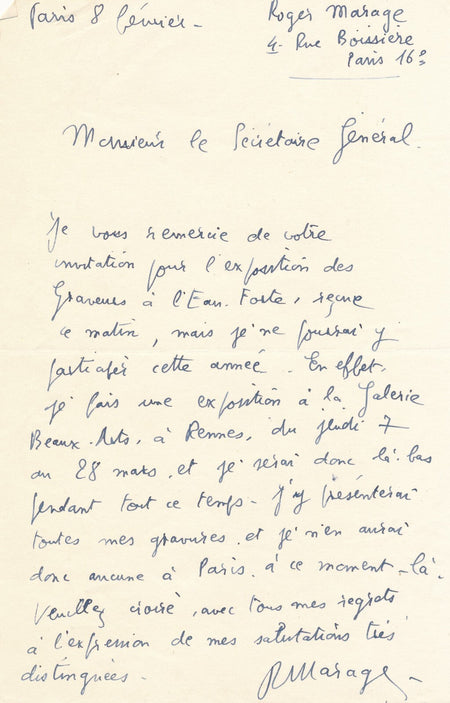 Paris 8 février -
Roger Marage
4 Rue Boissière
Paris 16e
Monsieur le Secrétaire Général.
Je vous remercie de votre
invitation pour l'exposition des
Graveurs à l'Eau-Forte, reçue
ce matin, mais je ne pourrai y
participer cette année. En effet,
je fais une exposition à la Galerie
Beaux-Arts, à Rennes, du jeudi 7
au 28 mars, et je serai donc là-bas
pendant tout ce temps - J'y présenterai
toutes mes gravures, et je n'en aurai
donc aucune à Paris, à ce moment-là.
Veuillez croire, avec tous mes regrets
à l'expression de mes salutations très
distinguées -
RMarage